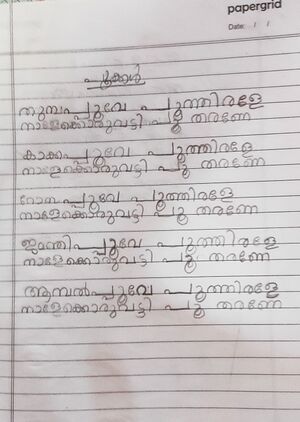 papergrid
Date: / /
പൂക്കൾ
തുമ്പപ്പൂവേ പൂത്തിരളേ
നാളേക്കൊരുവട്ടി പൂ തരണേ
കാക്കപ്പൂവേ പൂത്തിരളേ
നാളേക്കൊരുവട്ടി പൂ തരണേ
റോസപ്പൂവേ പൂത്തിരളേ
നാളേക്കൊരുവട്ടി പൂ തരണേ
ജമന്തിപ്പൂവേ പൂത്തിരളേ
നാളേക്കൊരുവട്ടി പൂ തരണേ
ആമ്പൽപ്പൂവേ പൂത്തിരളേ
നാളേക്കൊരുവട്ടി പൂ തരണേ